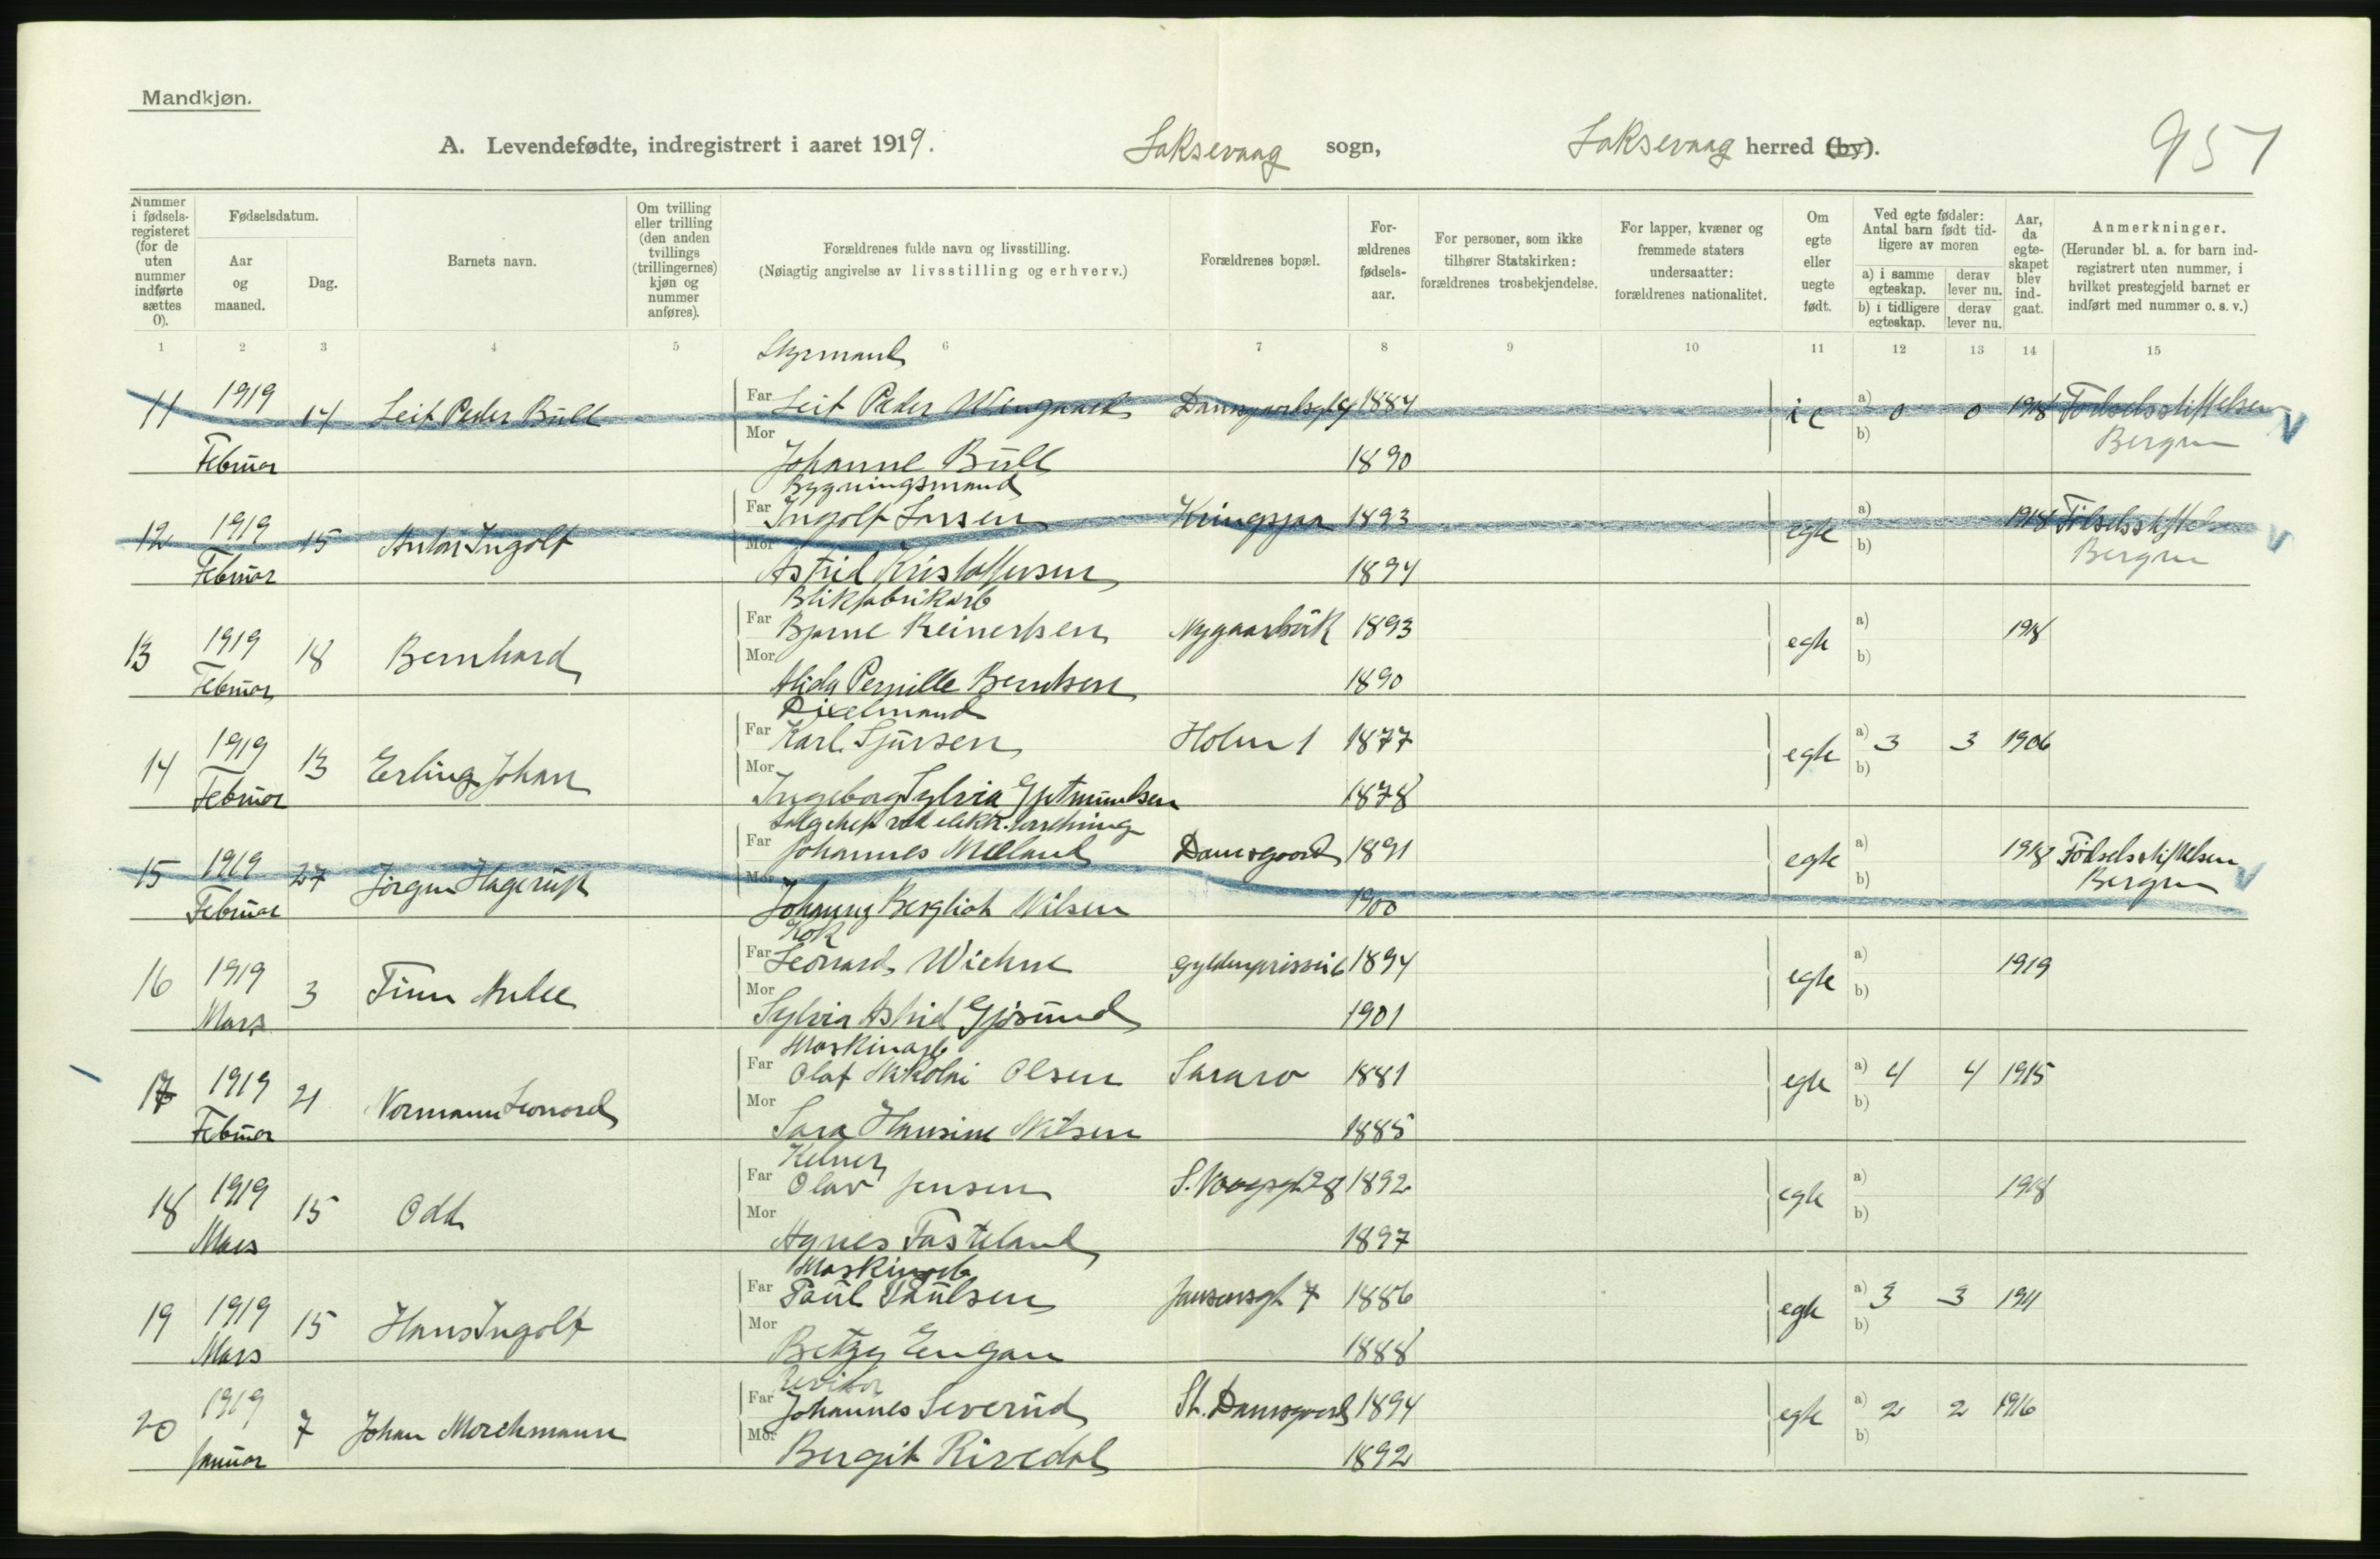 Mandkjøn.
A. Levendefødte, indregistrert i aaret 1919. Laksevaag sogn, Laksevaag herred (by).
957
Nummer i fødselsregisteret (for de uten nummer indførte sættes 0).
Fødselsdatum.
Aar og maaned.
Dag.
Barnets navn.
Om tvilling eller trilling (den anden tvillings (trillingernes) kjøn og nummer anføres).
Forældrenes fulde navn og livsstilling.
(Nøiagtig angivelse av livsstilling og erhverv.)
Forældrenes bopæl.
Forældrenes fødselsaar.
For personer, som ikke tilhører Statskirken: forældrenes trosbekjendelse.
For lapper, kvæner og fremmede staters undersaatter: forældrenes nationalitet.
Om egte eller uegte født.
Ved egte fødsler: Antal barn født tidligere av moren
a) i samme egteskap. derav lever nu.
b) i tidligere egteskap. derav lever nu.
Aar, da egteskapet blev indgaat.
Anmerkninger.
(Herunder bl. a. for barn indregistrert uten nummer, i hvilket prestegjeld barnet er indført med nummer o. s. v.)
1 2 3 4 5 6 7 8 9 10 11 12 13 14 15
Styrmand
11 1919 14 Leif Peder Bull Far Leif Peder Wingaard 1884 a) 0 0 1918 Fødselsstiftelsen
Februar Mor Johanne Bull 1890 b) Bergen
Bygningsmand
12 1919 15 Anton Ingolf Far Ingolf Larsen Kringsjaa 1893 egte a) 1918 Fødselsstiftelsen
Februar Mor Astrid Kristoffersen 1894 b) Bergen
Blikfabrikarb
13 1919 18 Bernhard Far Bjarne Reinertsen 1893 egte a) 1918
Februar Mor Alida Pernille Berntsen 1890 b)
Dixelmand
14 1919 13 Erling Johan Far Karl Sjursen Holen 1 1877 egte a) 3 3 1906
Februar Mor Ingeborg Sylvia 1878 b)
Salgchef ved elektr. forretning
15 1919 27 Jörgen Hagerup Far Johannes Mæland Damsgaard 1891 egte a) 1918 Fødselsstiftelsen
Februar Mor Johanna Bergliot Nilsen 1900 b) Bergen
Kok
16 1919 3 Finn Far Leonard Wiehne 1894 egte a) 1919
Mars Mor Sylvia Astrid Gjøsund 1901 b)
Maskinarb
17 1919 21 Normann Leonard Far Olaf Nikolai Olsen 1881 egte a) 4 4 1915
Februar Mor Sara Hansine Nilsen 1885 b)
Kelner
18 1919 15 Odd Far Olav Jensen 1892 egte a) 1918
Mars Mor Agnes Tasteland 1897 b)
Maskinarb
19 1919 15 Hans Ingolf Far Paul Paulsen Jansonsgt 7 1886 egte a) 3 3 1911
Mars Mor Betzy Engan 1888 b)
Revisor
20 1919 7 Johan Morchmann Far Johannes Severud St. Damsgaard 1894 egte a) 2 2 1916
Januar Mor Bergit Rivedal 1892 b)